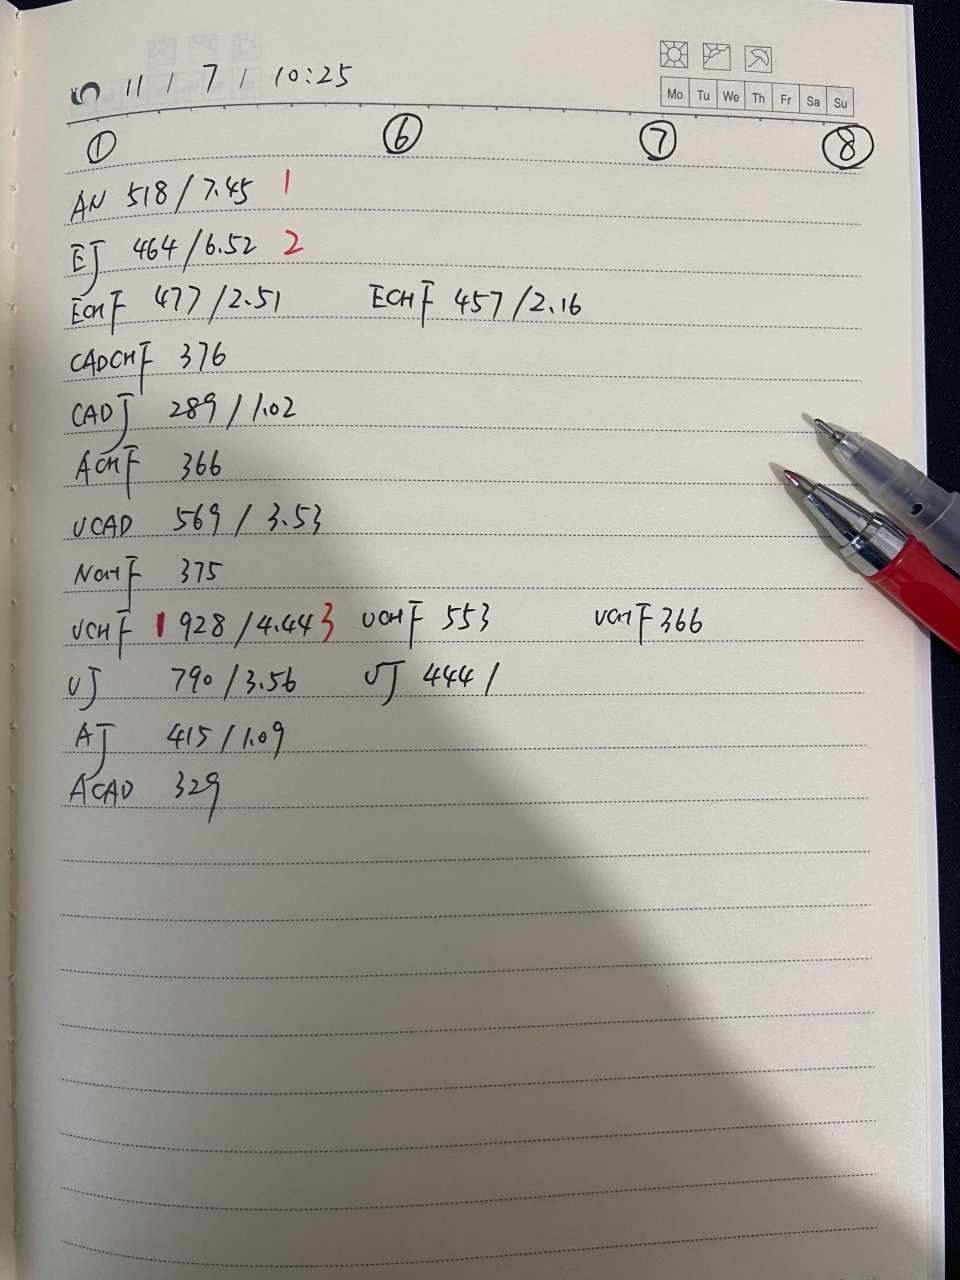 11 / 7 / 10:25
Mo Tu We Th Fr Sa Su
① ⑥ ⑦ ⑧
AN 518 / 7.45 1
EJ 464 / 6.52 2
ECHF 477 / 2.51 ECHF 457 / 2.16
CADCHF 376
CADJ 289 / 1.02
ACHF 366
UCAD 569 / 3.53
NCHF 375
UCHF 1 928 / 4.44 3 UCHF 553 UCHF 366
UJ 790 / 3.56 UJ 444 /
AJ 415 / 1.09
ACAD 329